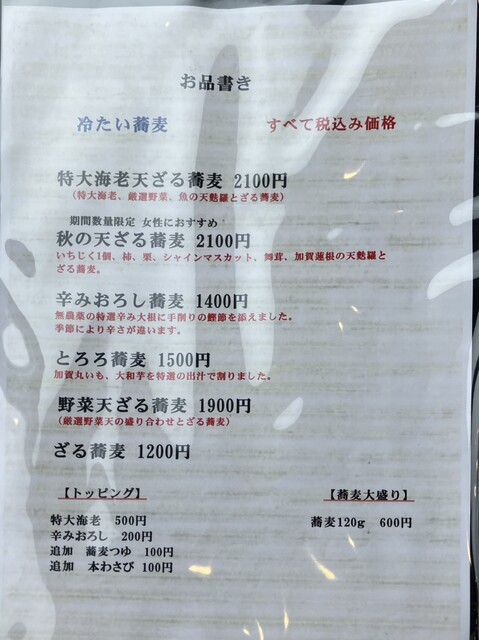 お品書き
冷たい蕎麦　すべて税込み価格
特大海老天ざる蕎麦 2100円
（特大海老、厳選野菜、魚の天麩羅とざる蕎麦）
期間数量限定 女性におすすめ
秋の天ざる蕎麦 2100円
いちじく1個、柿、栗、シャインマスカット、舞茸、加賀蓮根の天麩羅と
ざる蕎麦。
辛みおろし蕎麦 1400円
無農薬の特選辛み大根に手削りの鰹節を添えました。
季節により辛さが違います。
とろろ蕎麦 1500円
加賀丸いも、大和芋を特選の出汁で割りました。
野菜天ざる蕎麦 1900円
（厳選野菜天の盛り合わせとざる蕎麦）
ざる蕎麦 1200円
【トッピング】
特大海老 500円
辛みおろし 200円
追加 蕎麦つゆ 100円
追加 本わさび 100円
【蕎麦大盛り】
蕎麦120g 600円